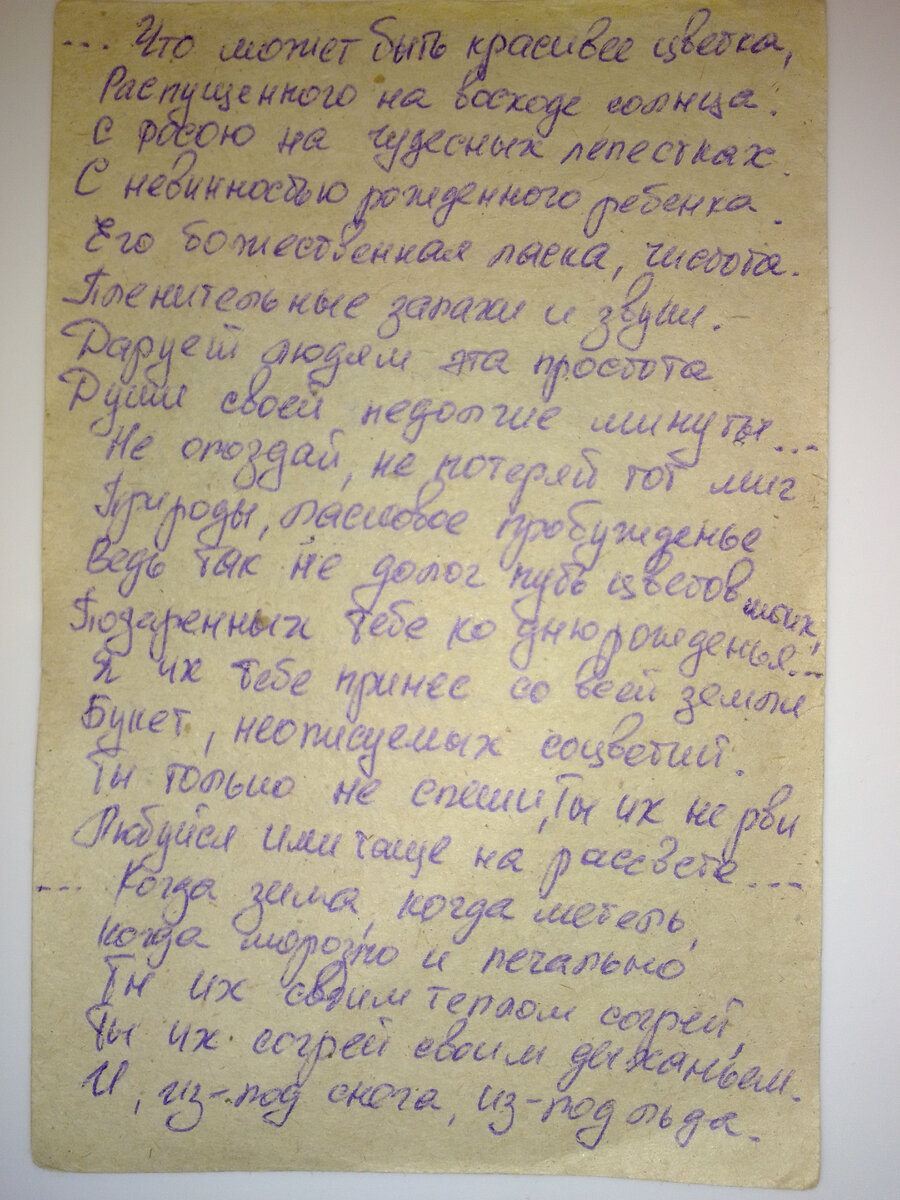 ... Что может быть красивее цветка,
Распущенного на восходе солнца.
С росою на чудесных лепестках.
С невинностью рожденного ребенка.
Его божественная ласка, чистота.
Пленительные запахи и звуки.
Дарует людям эта простота
Души своей недолгие минуты...
Не опоздай, не потеряй тот миг
Природы, ласковое пробужденье
Ведь так не долог путь цветов моих,
Подаренных тебе ко дню рожденья...
Я их тебе принес со всей земли
Букет, неописуемых соцветий.
Ты только не спеши, Ты их не рви
Любуйся ими чаще на рассвете...
... Когда зима, когда метель,
Когда морозно и печально
Ты их своим теплом согрей,
Ты их согрей своим дыханьем.
И, из-под снега, из-под льда.